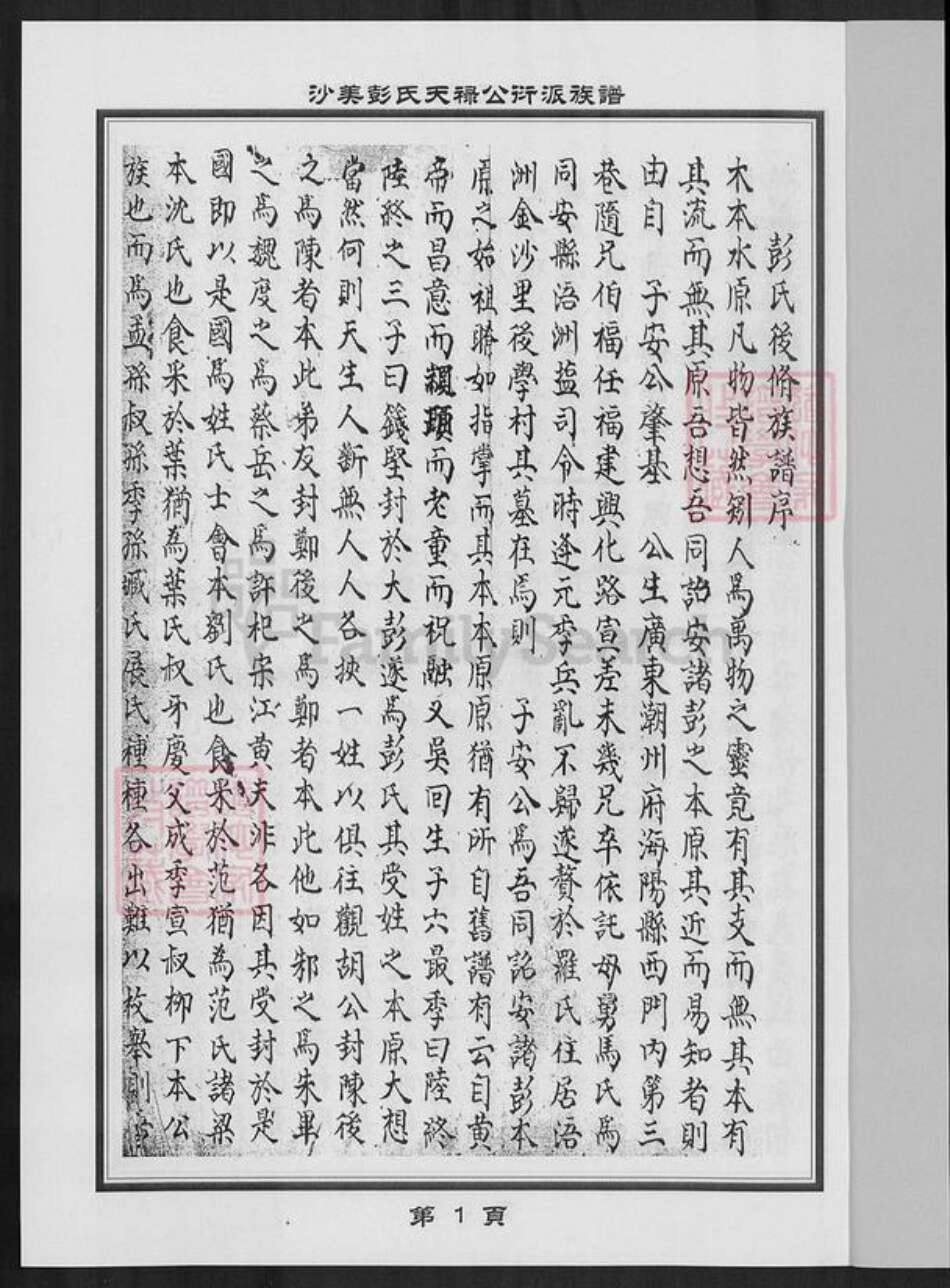 沙美彭氏天祿公衍派族譜
彭氏後脩族譜序
木本水原凡物皆然矧人爲萬物之靈竟有其支而無其本有
其流而無其原吾想吾同詔安諸彭之本原其近而易知者則
由自 子安公肇基 公生廣東潮州府海陽縣西門內第三
巷隨兄伯福任福建興化路宣差未幾兄卒依託母舅馬氏爲
同安縣浯洲塩司令時逢元季兵亂不歸遂贅於羅氏住居浯
洲金沙里後學村其墓在焉則 子安公爲吾同詔安諸彭本
原之始祖瞭如指掌而其本本原原猶有所自舊譜有云自黃
帝而昌意而顓頊而老童而祝融又吳回生子六最季曰陸終
陸終之三子曰籛堅封於大彭遂爲彭氏其受姓之本原大想
當然何則天生人斷無人人各挾一姓以俱往觀胡公封陳後
之爲陳者本此弟友封鄭後之爲鄭者本此他如邾之爲朱畢
之爲魏度之爲蔡岳之爲許杞宋江黃夫非各因其受封於是
國即以是國爲姓氏士會本劉氏也食采於范猶為范氏諸梁
本沈氏也食采於葉猶為葉氏叔牙慶父成季宣叔柳下本公
族也而爲孟孫叔孫季孫臧氏展氏種種各出難以枚舉則
第 1 頁
FamilySearch